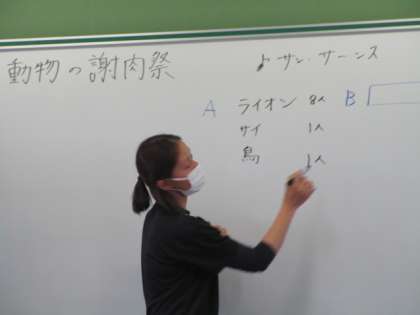 動物の謝肉祭
♪サン・サーンス
A ライオン 8人 B
サイ 1人
鳥 1人